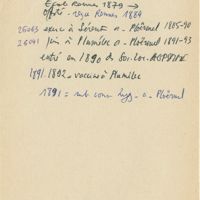 École Rennes 1879 →
reçu Rennes 1884
25063 exerce à Sérent a. Ploërmel 1885-90
25041 à Plumelec a. Ploërmel 1891-93
entré en 1890 de Soc. Loc.
1891.1892 - vaccine à Plumelec
1891 = sub. cons. hyg. a. Ploërmel